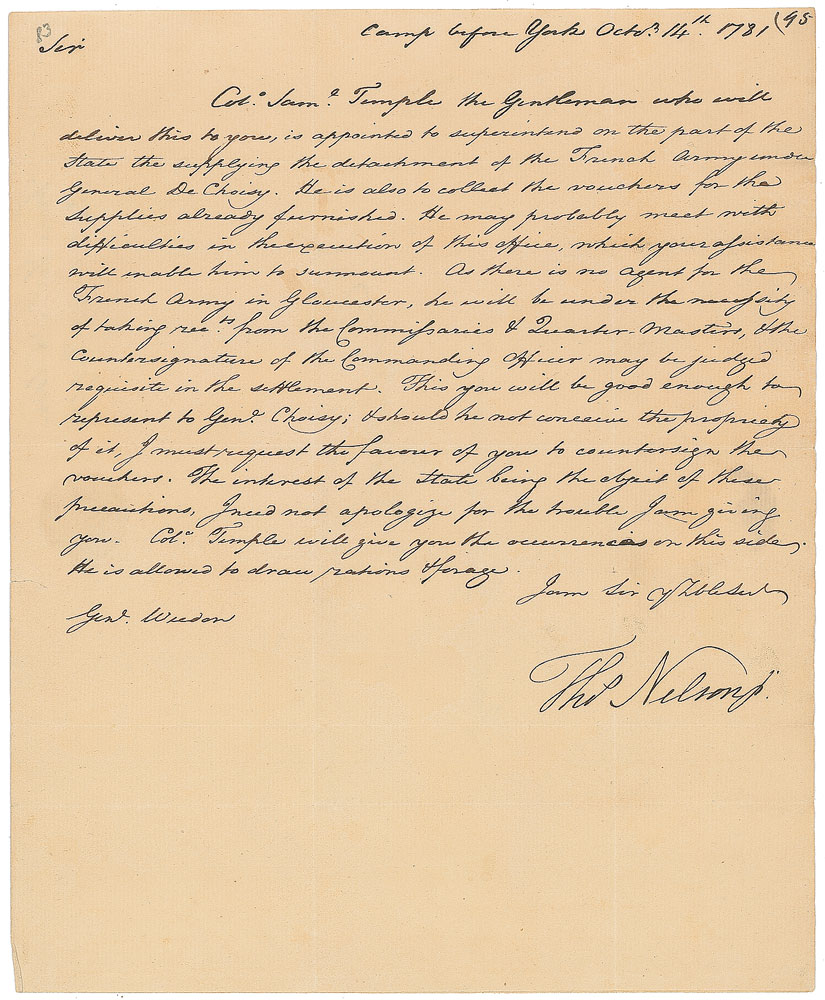 83
Camp before York Octo.r 14th. 1781 (95
Sir
Col.o Sam.l Temple the Gentleman who will
deliver this to you, is appointed to superintend on the part of the
State the supplying the detachment of the French Army under
General De Choisy. He is also to collect the vouchers for the
supplies already furnished. He may probably meet with
difficulties in the execution of this office, which your assistance
will enable him to surmount. As there is no agent for the
French Army in Gloucester, he will be under the necessity
of taking rec.ts from the Commissaries & Quarter-Masters, & the
countersignature of the Commanding Officer may be judged
requisite in the settlement. This you will be good enough to
represent to Gen.l Choisy; & should he not conceive the propriety
of it, I must request the favour of you to countersign the
vouchers. The interest of the State being the object of these
precautions, I need not apologize for the trouble I am giving
you. Col.o Temple will give you the occurrences on this side.
He is allowed to draw rations & forage.
I am Sir y.r Hble Serv.t
Gen.l Weedon
Tho.s Nelson jr.